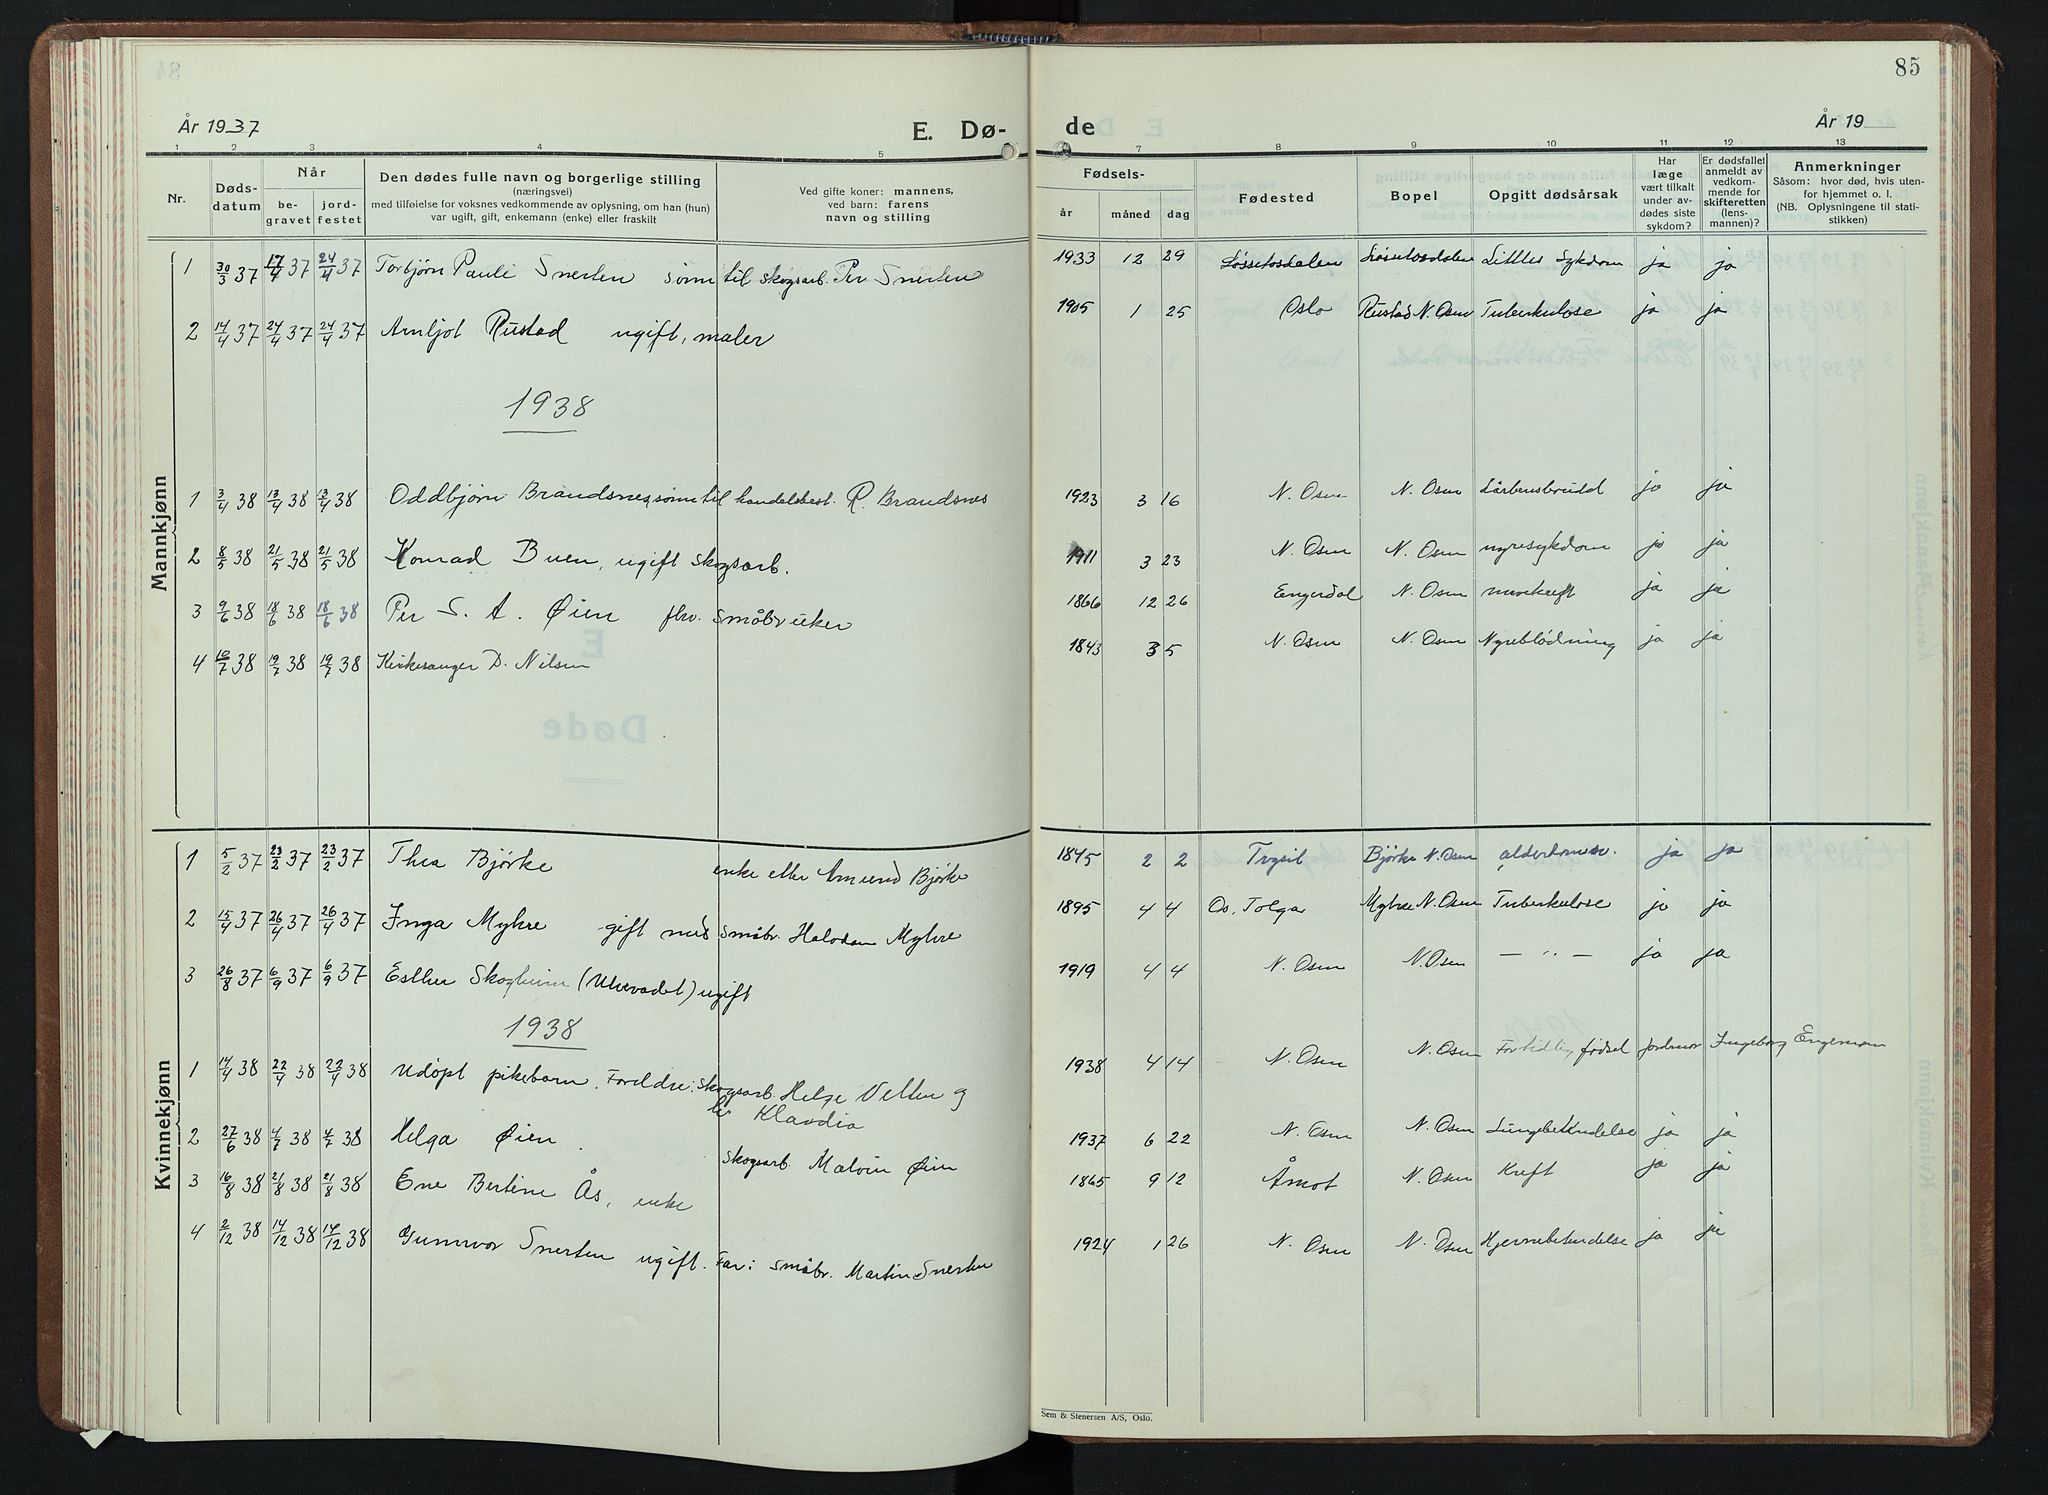 85
År 1937
E. Dø-
de
År 19
1 2 3 4 5 7 8 9 10 11 12 13
Nr.
Døds-
datum
Når
be-
gravet
jord-
festet
Den dødes fulle navn og borgerlige stilling
(næringsvei)
med tilføielse for voksnes vedkommende av oplysning, om han (hun)
var ugift, gift, enkemann (enke) eller fraskilt
Ved gifte koner: mannens,
ved barn: farens
navn og stilling
Fødsels-
år måned dag
Fødested
Bopel
Opgitt dødsårsak
Har
læge
vært tilkalt
under av-
dødes siste
sykdom?
Er dødsfallet
anmeldt av
vedkom-
mende for
skifteretten
(lens-
mannen)?
Anmerkninger
Såsom: hvor død, hvis uten-
for hjemmet o. l.
(NB. Oplysningene til stati-
stikken)
Mannkjønn
1 30/3 37 17/4 37 24/4 37 Torbjørn Pauli Snerten sønn til skogsarb. Per Snerten 1933 12 29 Løssetosdalen Løssetosdalen sykdom ja ja
2 14/4 37 24/4 37 24/4 37 Arnljot Rustad ugift, maler 1905 1 25 Oslo Rustad N. Osen Tuberkulose ja ja
1938
1 3/4 38 13/4 38 13/4 38 Oddbjørn Brandsnes, sønn til handelsbest. R. Brandsnes 1923 3 16 N. Osen N. Osen ja ja
2 8/5 38 21/5 38 21/5 38 Konrad Buen, ugift skogsarb. 1911 3 23 N. Osen N. Osen nyresykdom ja ja
3 9/6 38 18/6 38 18/6 38 Per S. A. Øien fhv. småbruker 1866 12 26 Engerdal N. Osen mavekreft ja ja
4 10/7 38 19/7 38 19/7 38 Kirkesanger D. Nilsen 1843 3 5 N. Osen N. Osen Nyreblødning ja ja
Kvinnekjønn
1 5/2 37 23/2 37 23/2 37 Thea Bjørke enke etter Amund Bjørke 1845 2 2 Trysil Bjørke N. Osen alderdomssv. ja ja
2 15/4 37 26/4 37 26/4 37 Inga Myhre gift med småbr. Halvdan Myhre 1895 4 4 Os, Tolga Myhre N. Osen Tuberkulose ja ja
3 26/8 37 6/9 37 6/9 37 Esther Skogheim (Ulvevadet) ugift 1919 4 4 N. Osen N. Osen — " — ja ja
1938
1 14/4 38 22/4 38 22/4 38 Udøpt pikebarn. Foreldre: Skogsarb. Helge Velten og
Klavdia 1938 4 14 N. Osen N. Osen For tidlig fødsel Jordmor Ingeborg Engeman
2 27/6 38 4/7 38 4/7 38 Helga Øien. Skogsarb. Malvin Øien 1937 6 22 N. Osen N. Osen Lungebetendelse ja ja
3 16/8 38 21/8 38 21/8 38 Ene Bertine Ås, enke 1865 9 12 Åmot N. Osen Kreft ja ja
4 2/12 38 14/12 38 14/12 38 Gunnvor Snerten ugift. Far: småbr. Martin Snerten 1924 1 26 N. Osen N. Osen Hjernebetendelse ja ja
Sem & Stenersen A/S, Oslo.